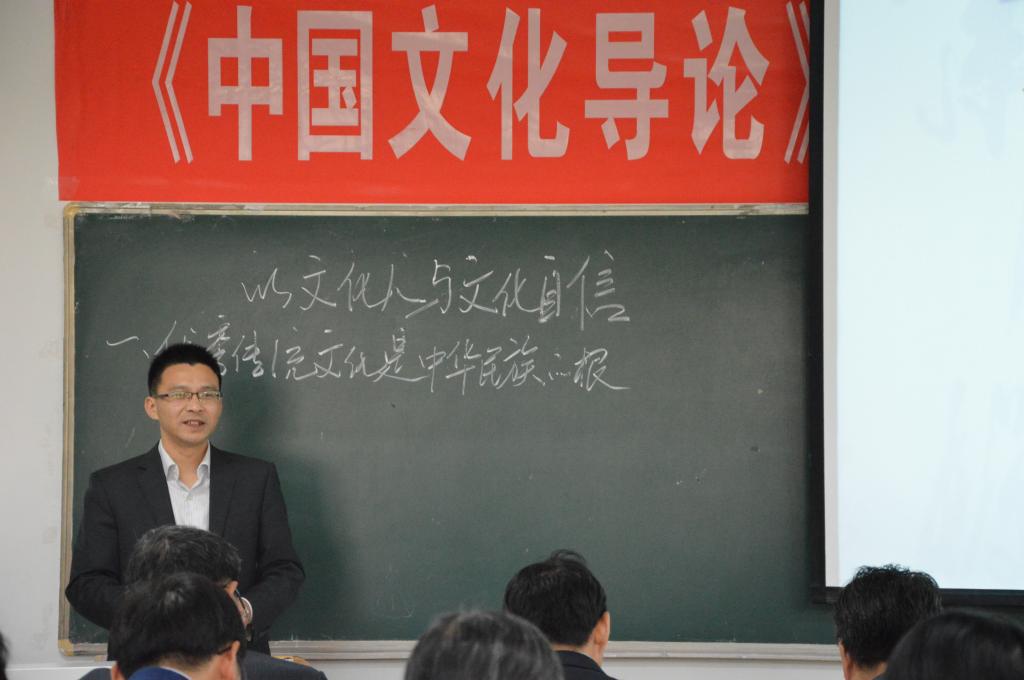 《中国文化导论》
以文化人与文化自信
一、优秀传统文化是中华民族的根